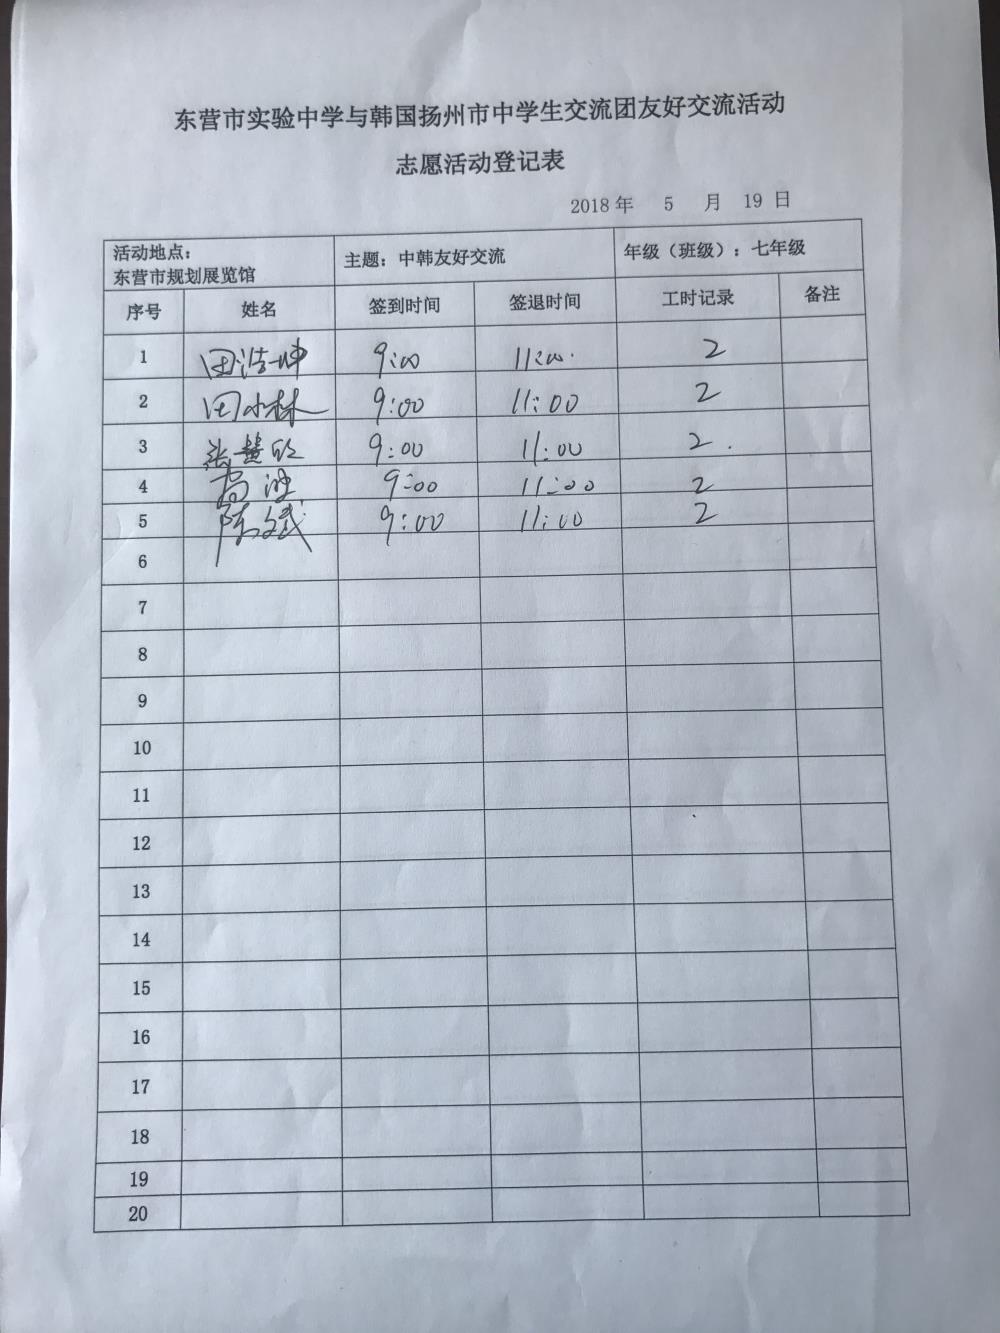 东营市实验中学与韩国扬州市中学生交流团友好交流活动
志愿活动登记表
2018 年 5 月 19 日
活动地点：
东营市规划展览馆
主题：中韩友好交流
年级（班级）：七年级
序号 姓名 签到时间 签退时间 工时记录 备注
1 田浩坤 9:00 11:00 2
2 田小林 9:00 11:00 2
3 张慧欣 9:00 11:00 2
4 9:00 11:00 2
5 陈文斌 9:00 11:00 2
6
7
8
9
10
11
12
13
14
15
16
17
18
19
20